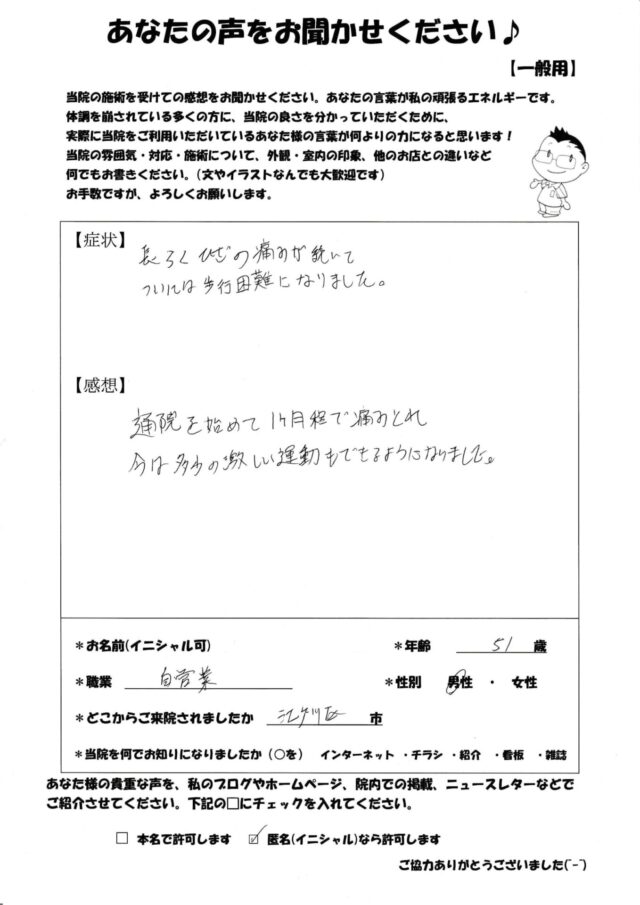 あなたの声をお聞かせください♪
【一般用】
当院の施術を受けての感想をお聞かせください。あなたの言葉が私の頑張るエネルギーです。
体調を崩されている多くの方に、当院の良さを分かっていただくために、
実際に当院をご利用いただいているあなた様の言葉が何よりの力になると思います！
当院の雰囲気・対応・施術について、外観・室内の印象、他のお店との違いなど
何でもお書きください。(文やイラストなんでも大歓迎です)
お手数ですが、よろしくお願いします。
【症状】
長らくひざの痛みが続いて
ついには歩行困難になりました。
【感想】
通院を始めて1ヶ月程で痛みとれ
今は多少の激しい運動もできるようになりました。
＊お名前(イニシャル可) ＊年齢 51 歳
＊職業 自営業 ＊性別 男性 ・ 女性
＊どこからご来院されましたか 江戸川区 市
＊当院を何でお知りになりましたか（○を） インターネット ・チラシ ・紹介 ・看板 ・雑誌
あなた様の貴重な声を、私のブログやホームページ、院内での掲載、ニュースレターなどで
ご紹介させてください。下記の□にチェックを入れてください。
□ 本名で許可します ☑ 匿名(イニシャル)なら許可します
ご協力ありがとうございました(¯-¯)